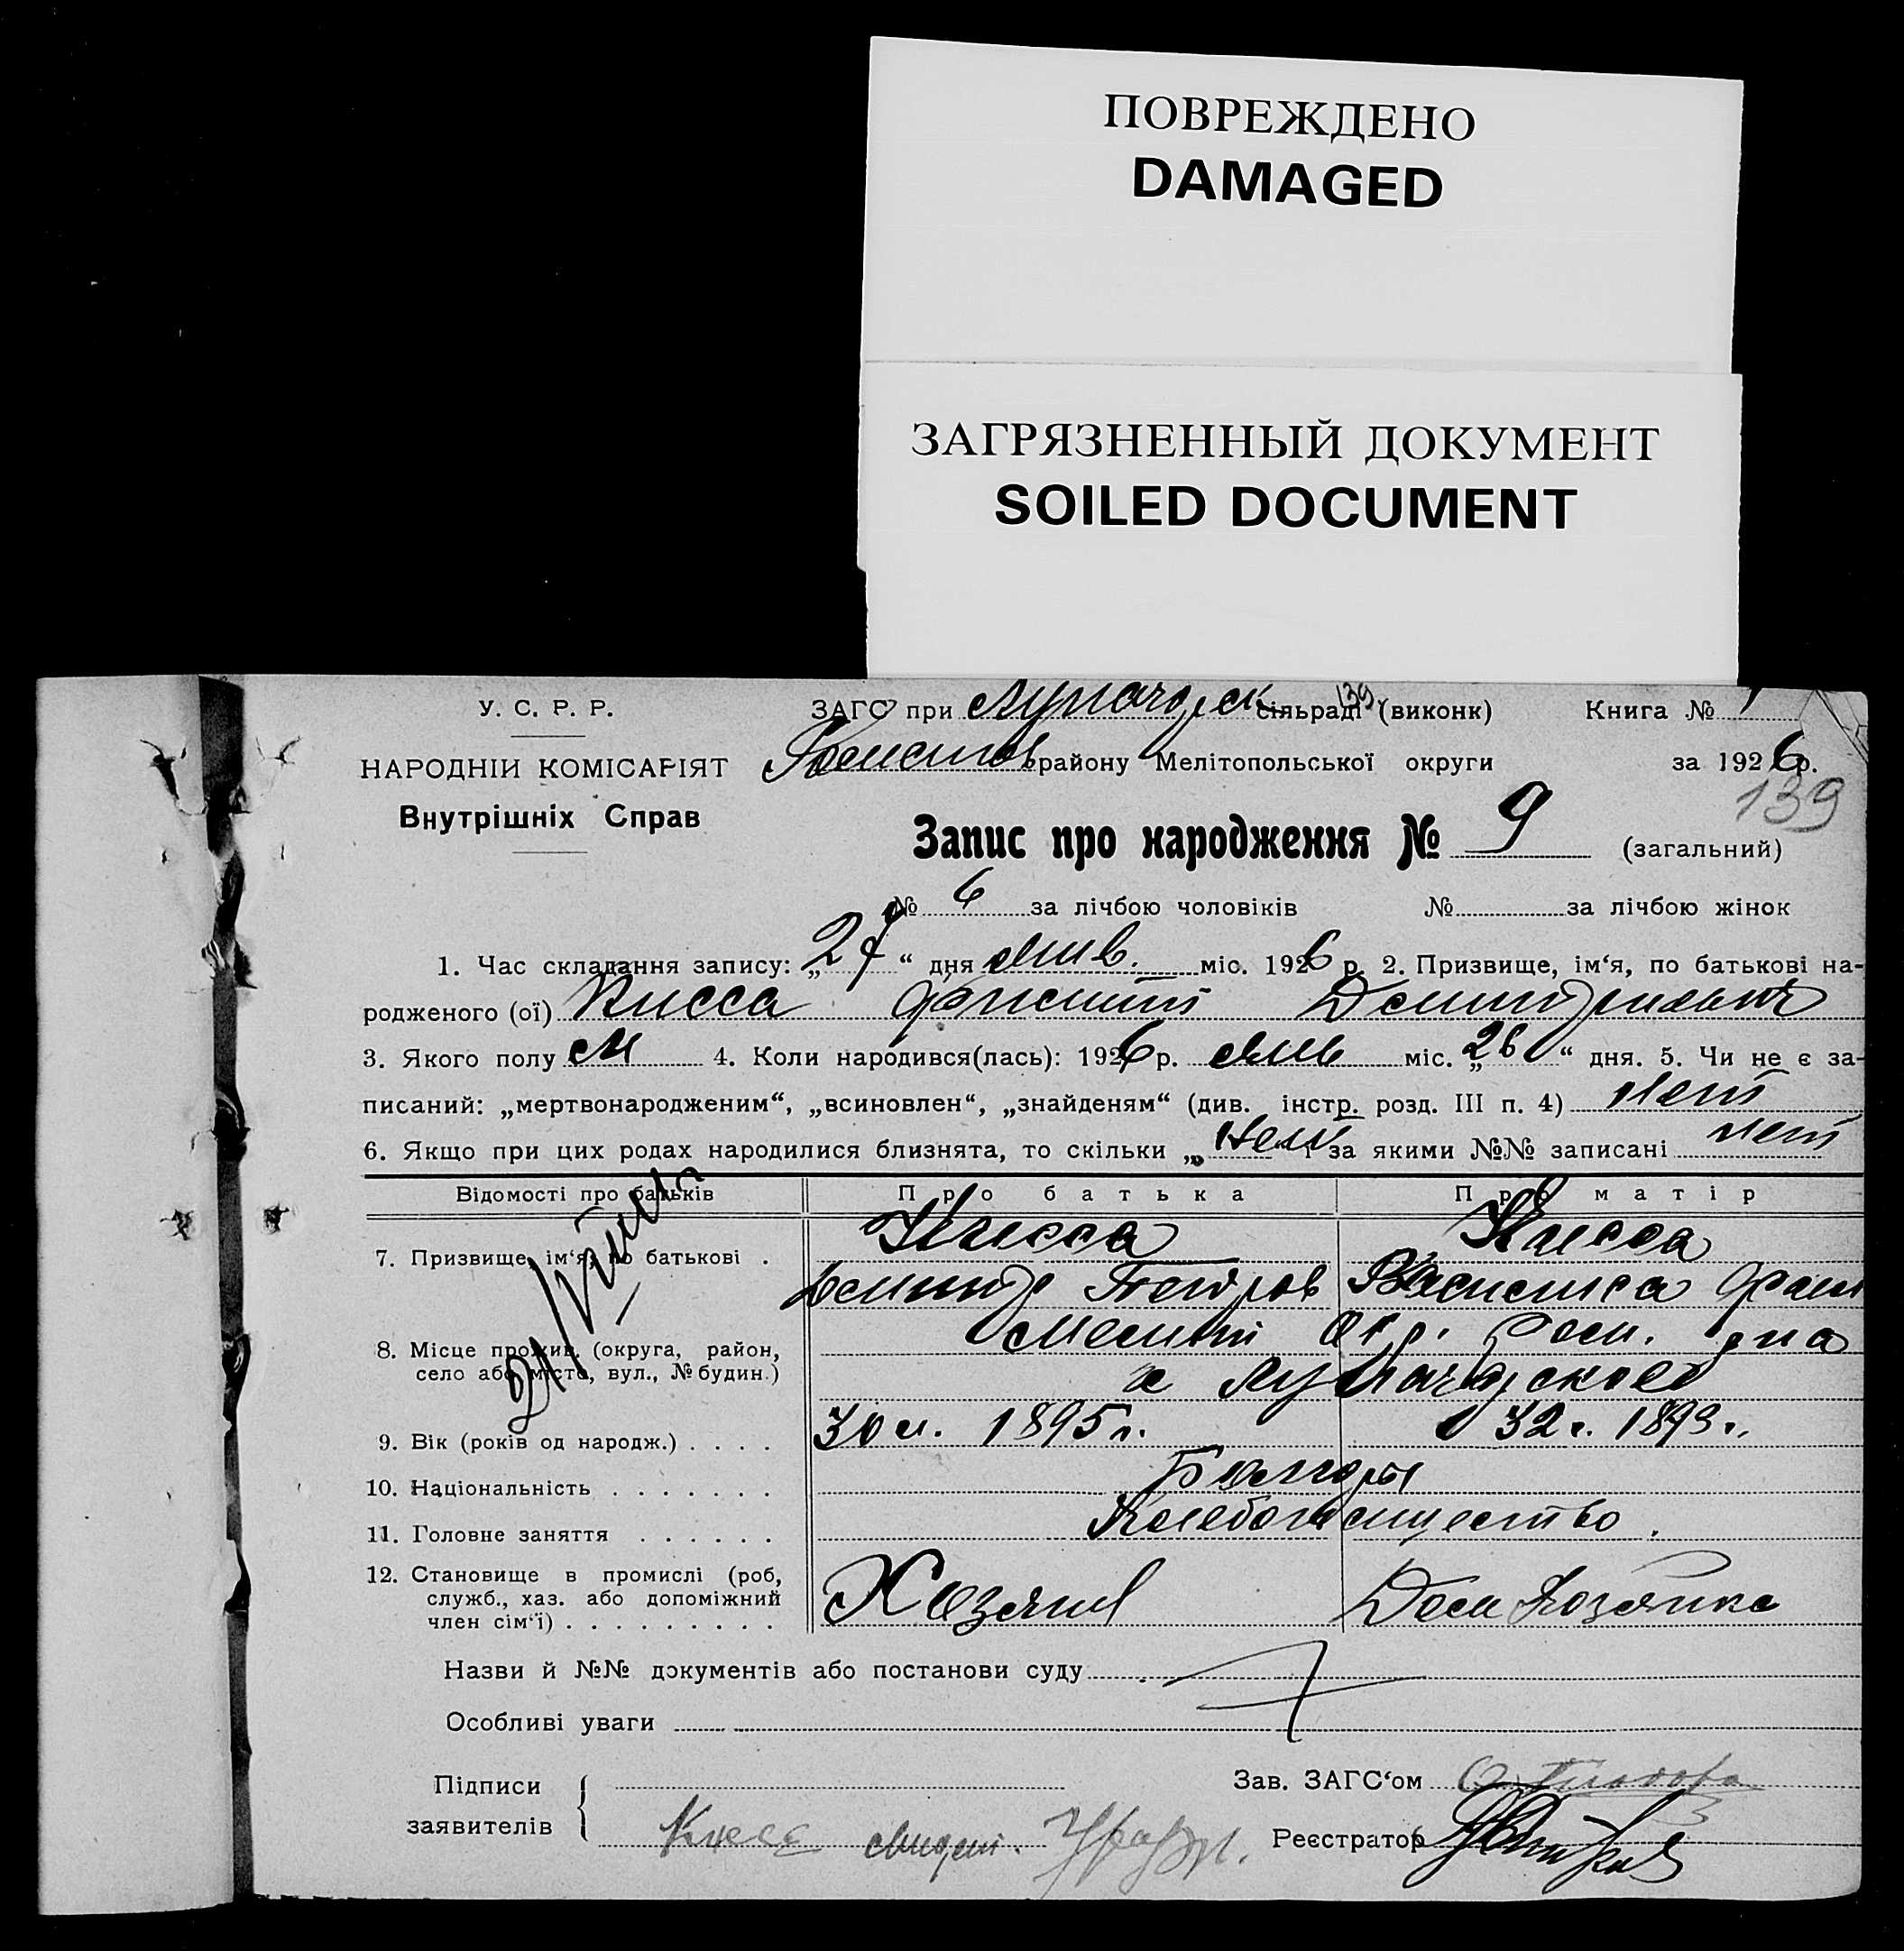 ПОВРЕЖДЕНО
DAMAGED
ЗАГРЯЗНЕННЫЙ ДОКУМЕНТ
SOILED DOCUMENT
У. С. Р. Р.
ЗАГС при Луначарск сільраді (виконк) Книга №
139
НАРОДНІИ КОМІСАРІЯТ
району Мелітопольської округи за 1926 р.
139
Внутрішніх Справ
Запис про народження № 9 (загальний)
№ 6 за лічбою чоловіків № за лічбою жінок
1. Час складання запису: „27“ дня янв. міс. 1926 р. 2. Призвище, ім‘я, по батькові на-
родженого (ої) Кисса Дмитриевич
3. Якого полу М 4. Коли народився(лась): 1926 р. янв міс. „26“ дня. 5. Чи не є за-
писаний: „мертвонародженим“, „всиновлен“, „знайденям“ (див. інстр. розд. III п. 4) нет
6. Якщо при цих родах народилися близнята, то скільки „ нет і за якими №№ записані нет
Відомості про батьків Про батька Про матір
7. Призвище, ім‘я, по батькові . Кисса Кисса
Петров Василиса
8. Місце прожив. (округа, район,
село або місто, вул., № будин.)
Мелит Окр. рна
Луначарское
9. Вік (років од народж.) . . . . 30 л. 1895 г. 32 г. 1893 г.
10. Національність . . . . . . .
11. Головне заняття . . . . . . Хлебопашество.
12. Становище в промислі (роб,
служб., хаз. або допоміжний
член сім‘ї) . . . . . . . . .
Хозяин Дом Хозяйка
Назви й №№ документів або постанови суду
Особливі уваги
Підписи
заявителів
Зав. ЗАГС‘ом
Кисса
Реєстратор